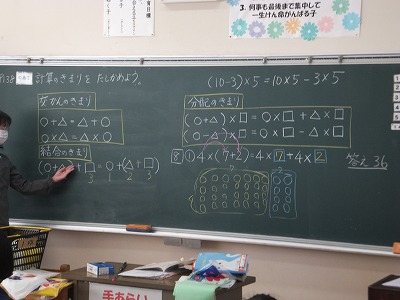 3. 何事も最後まで集中して
一生けん命がんばる子
P138
計算のきまりを たしかめよう。
(10-3)×5=10×5-3×5
交かんのきまり
○+△=△+○
○×△=△×○
結合のきまり
(○+△)+□=○+(△+□)
3 1 2 3
分配のきまり
(○+△)×□=○×□+△×□
(○-△)×□=○×□-△×□
8 ① 4×(7+2)=4×7+4×2
答え 36
手あらい